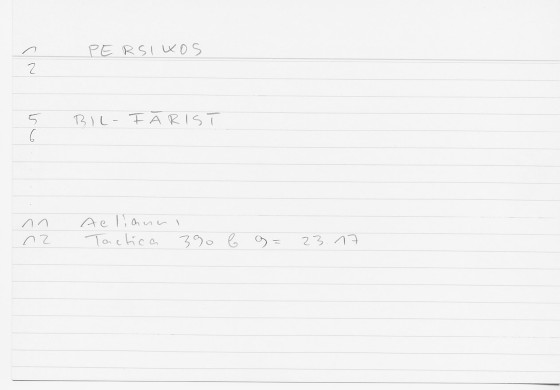 1 PERSIKOS
2
5 BIL-FĀRISĪ
6
11 Aeliani
12 Tactica 390 b 9 = 23 17